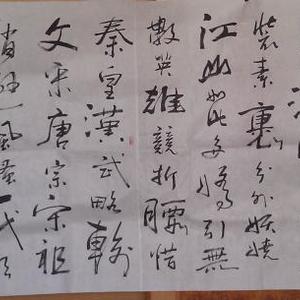 裝素裹分外妖嬈
江山如此多嬌引無
數英雄競折腰惜
秦皇漢武略輸
文采唐宗宋祖
稍遜風騷一代天